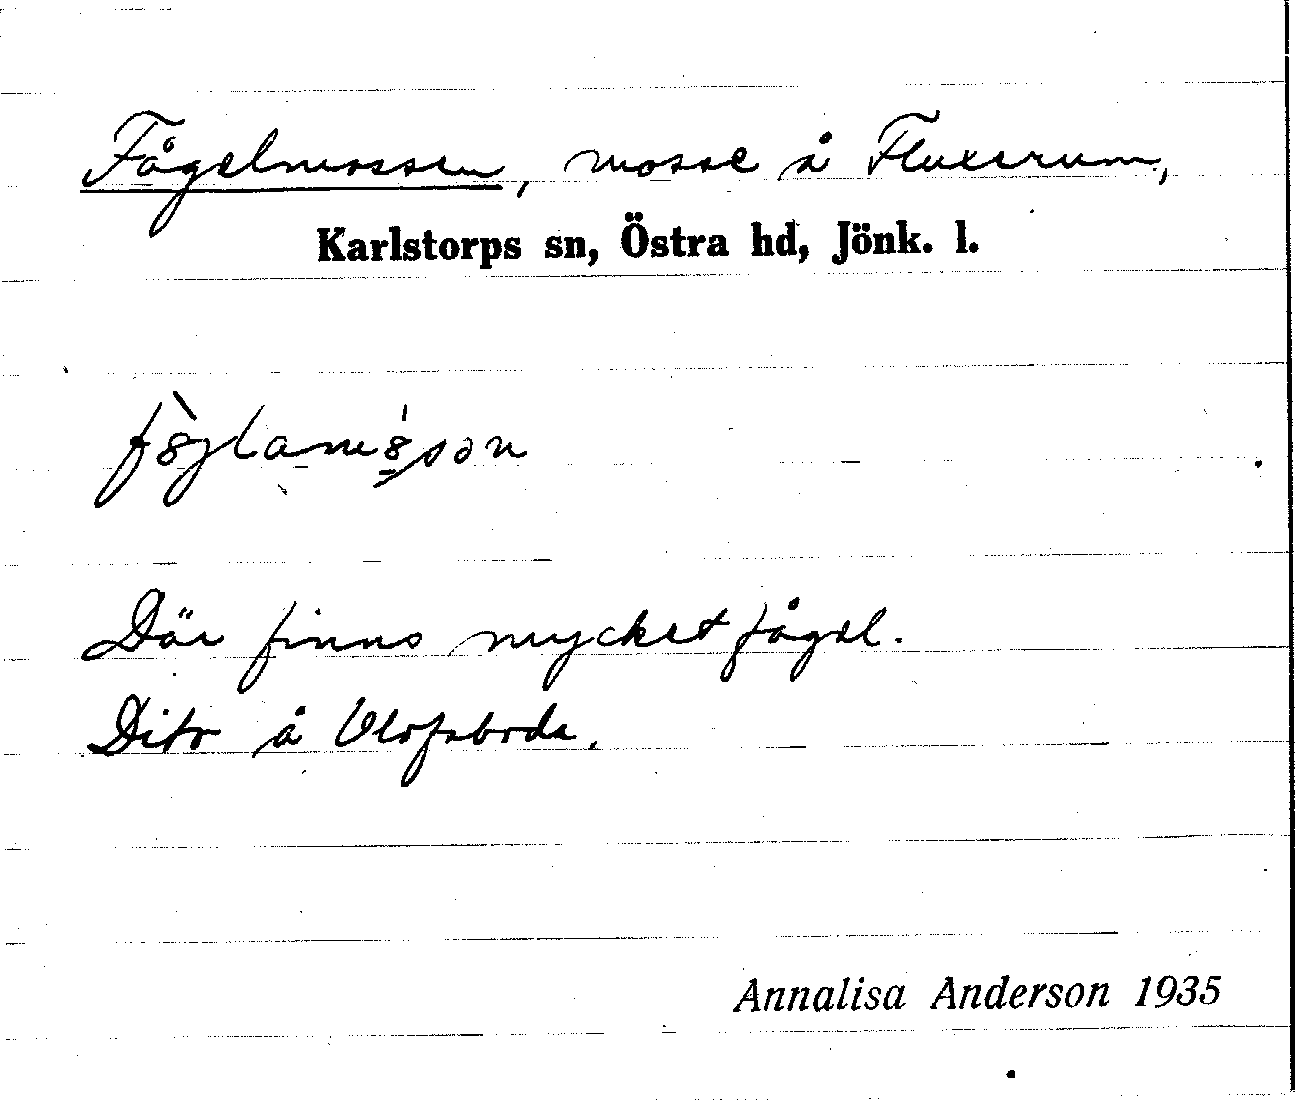 Fågelmossen, mosse å Fluxerum,
Karlstorps sn, Östra hd, Jönk. l.
Där finns mycket fågel.
Dito å Olofsboda.
Annalisa Anderson 1935